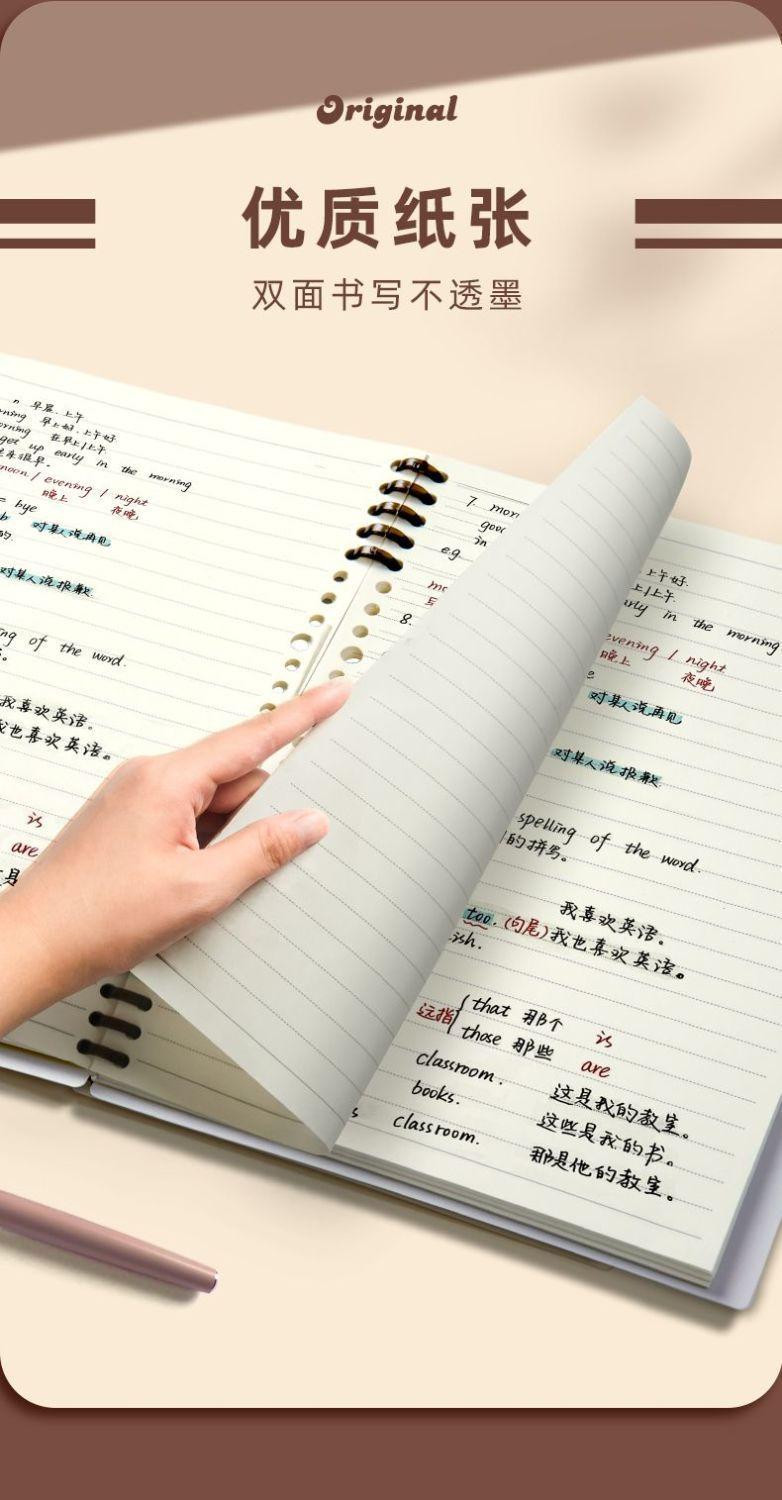 Original
优质纸张
双面书写不透墨
n 早晨、上午
morning 早上好、上午好
morning 在早上/上午
get up early in the morning
noon / evening / night
晚上 夜晚
= bye
对某人说再见
的.
对某人说报歉
ng of the word.
我喜欢英语。
我也喜欢英语。
is
are
7. mor
goo
in
e.g.
8.
上午好.
上/上午.
early in the morning
evening / night
晚上 夜晚
对某人说再见
对某人说报歉
spelling of the word.
的拼写。
我喜欢英语。
too. (句尾)我也喜欢英语。
ish.
远指{that 那个 is
those 那些 are
classroom. 这是我的教室。
books. 这些是我的书。
s classroom. 那是他的教室。